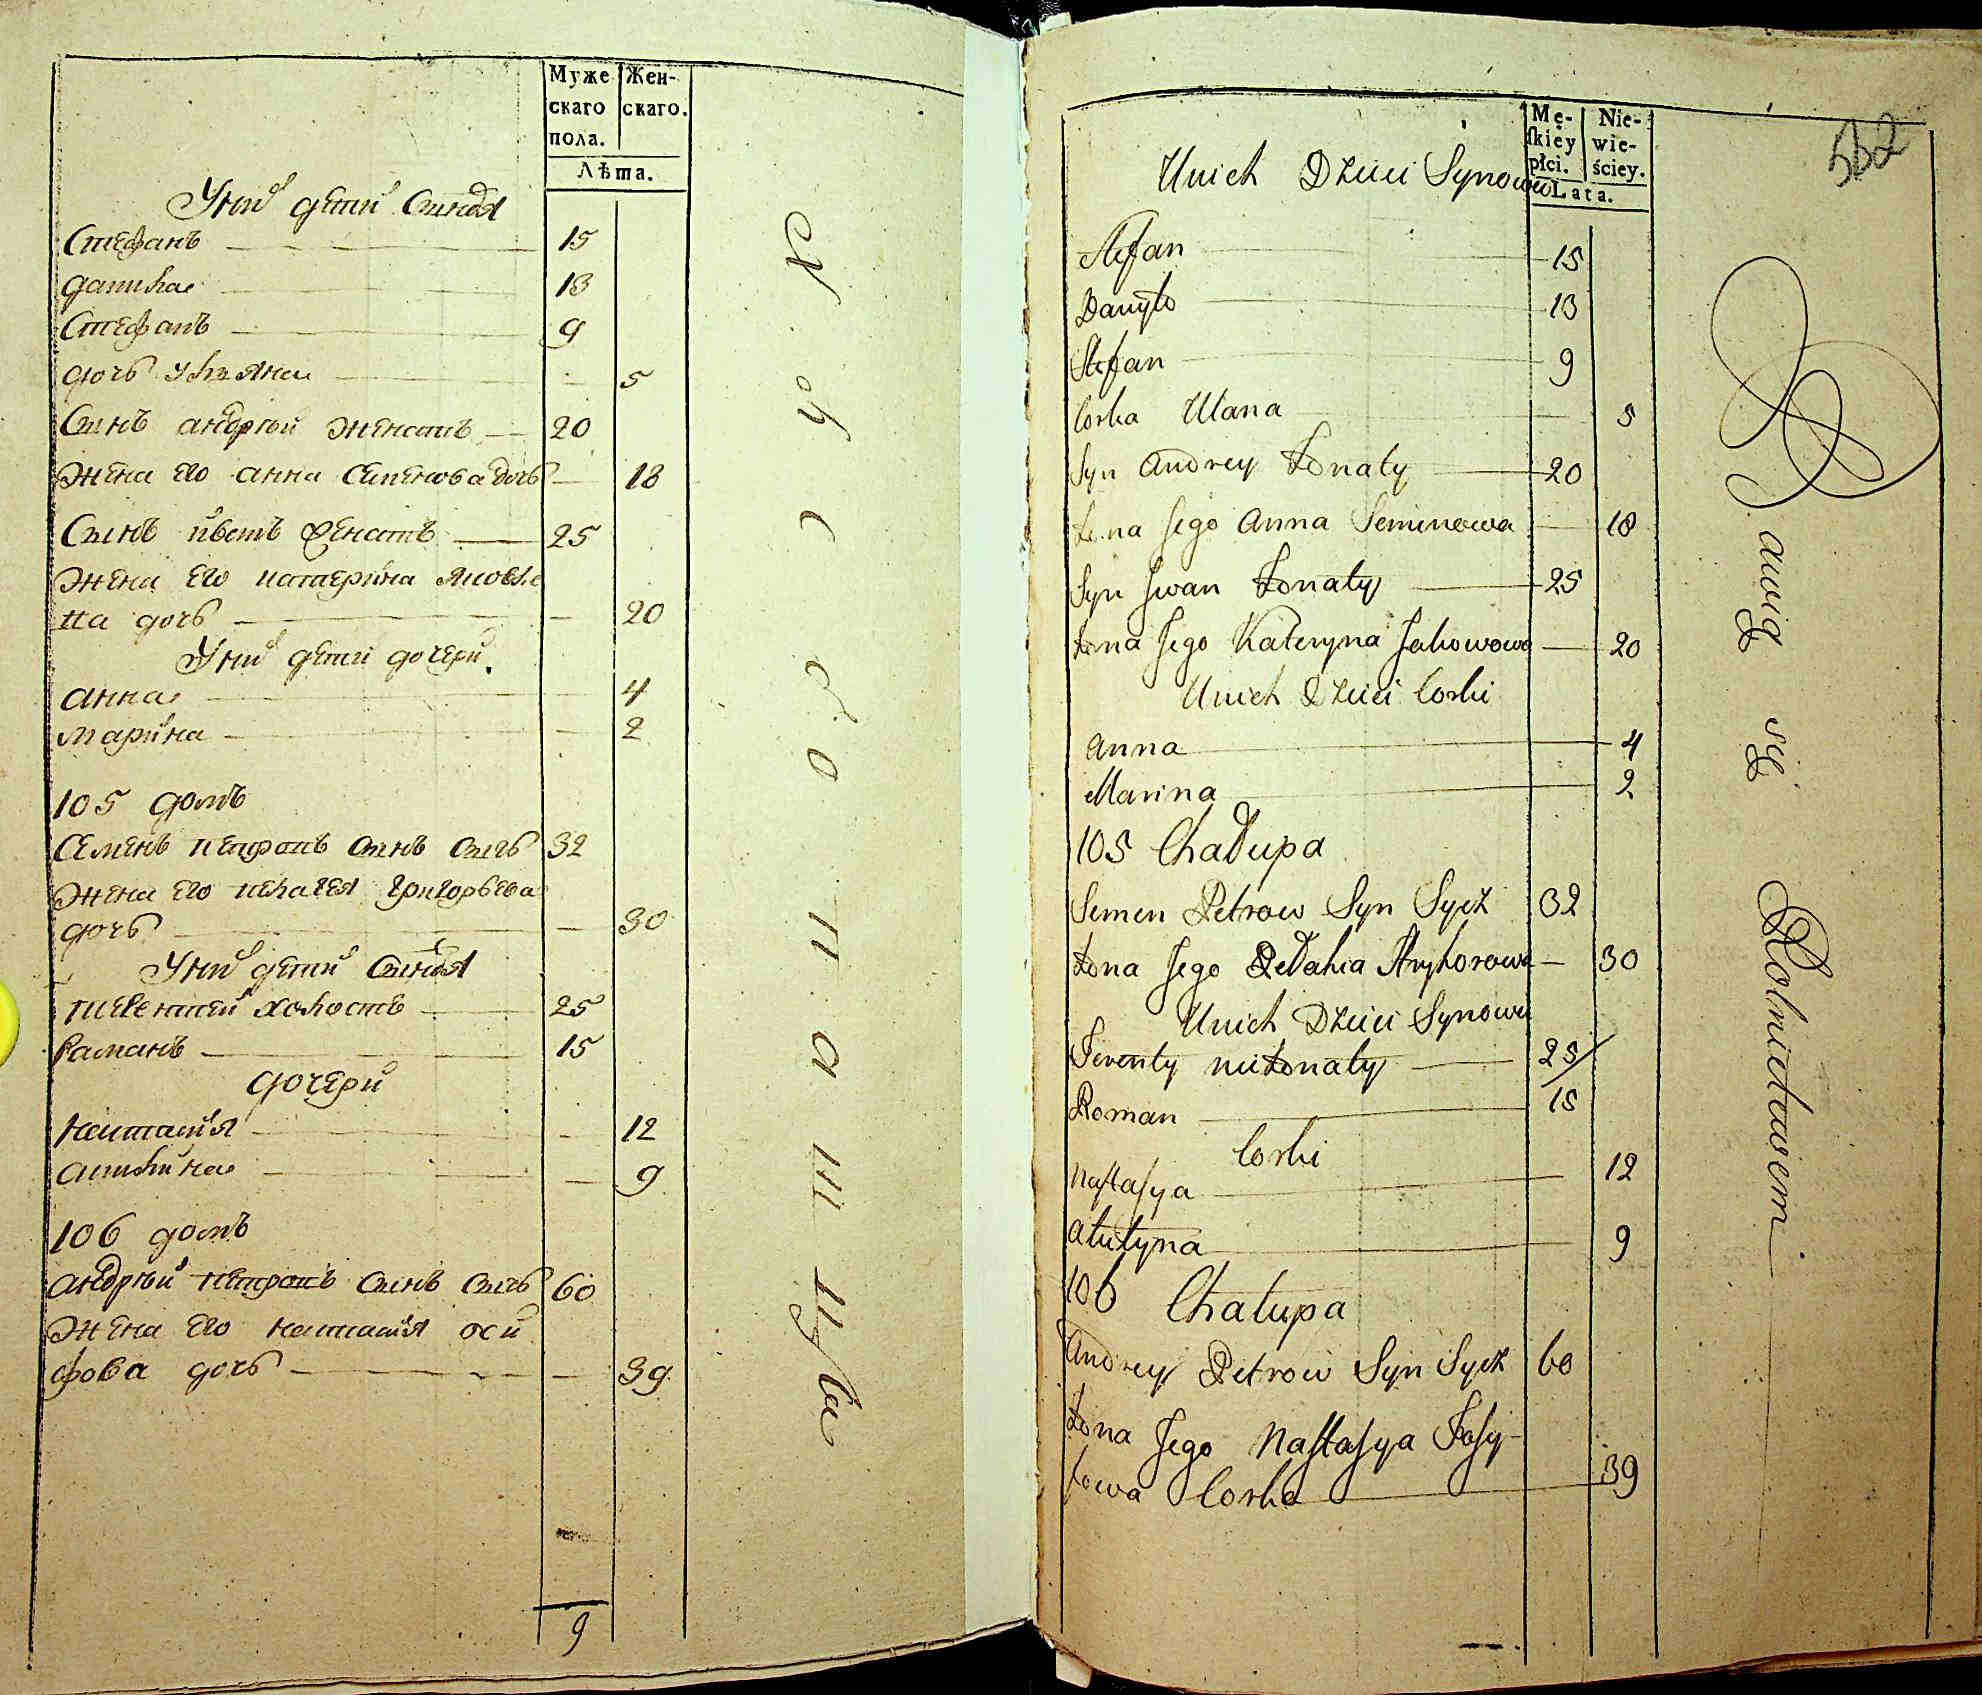 Муже
скаго
пола.
Жен-
скаго.
Лѣта.
Унихъ дети Сыновя
Стефанъ 15
данила 13
Стефанъ 9
дочь Ульяна 5
Сынъ андрей женатъ 20
Жена его анна Семенова дочь 18
Сынъ иванъ женатъ 25
Жена его катерина Яковле
на дочь 20
Унихъ дети дочери
анна 4
марина 2
105 домъ
Семенъ петровъ сынъ сычь 32
Жена его пелагея григорьева
дочь 30
Унихъ дети Сыновя
терентей холостъ 25
Раманъ 15
дочери
настасия 12
9
106 домъ
андрей петровъ сынъ сычь 60
Жена его настасия оси
фова дочь 39
9
хлебопашца
532
Mę-
ſkiéy
płci.
Nie-
wie-
ściey.
Lata.
Unich Dzieci Synowie
Stefan 15
Danyło 13
Stefan 9
Corka Ulana 5
Syn Andrey Żonaty 20
Żona Jego Anna Semenowa 18
Syn Jwan Żonaty 25
Żona Jego Kateryna Jakowowa 20
Unich Dzieci Corki
Anna 4
Marina 2
105 Chałupa
Semen Petrow Syn Sycz 32
Żona Jego Pełahia Hryhorowa 30
Unich Dzieci Synowie
Terenty nieżonaty 25
Roman 15
Corki
Naſtaſya 12
9
106 Chałupa
Andrey Petrow Syn Sycz 60
Żona Jego Naſtaſya Joſy-
fowa Corka 39
Bawią się Rolnictwem